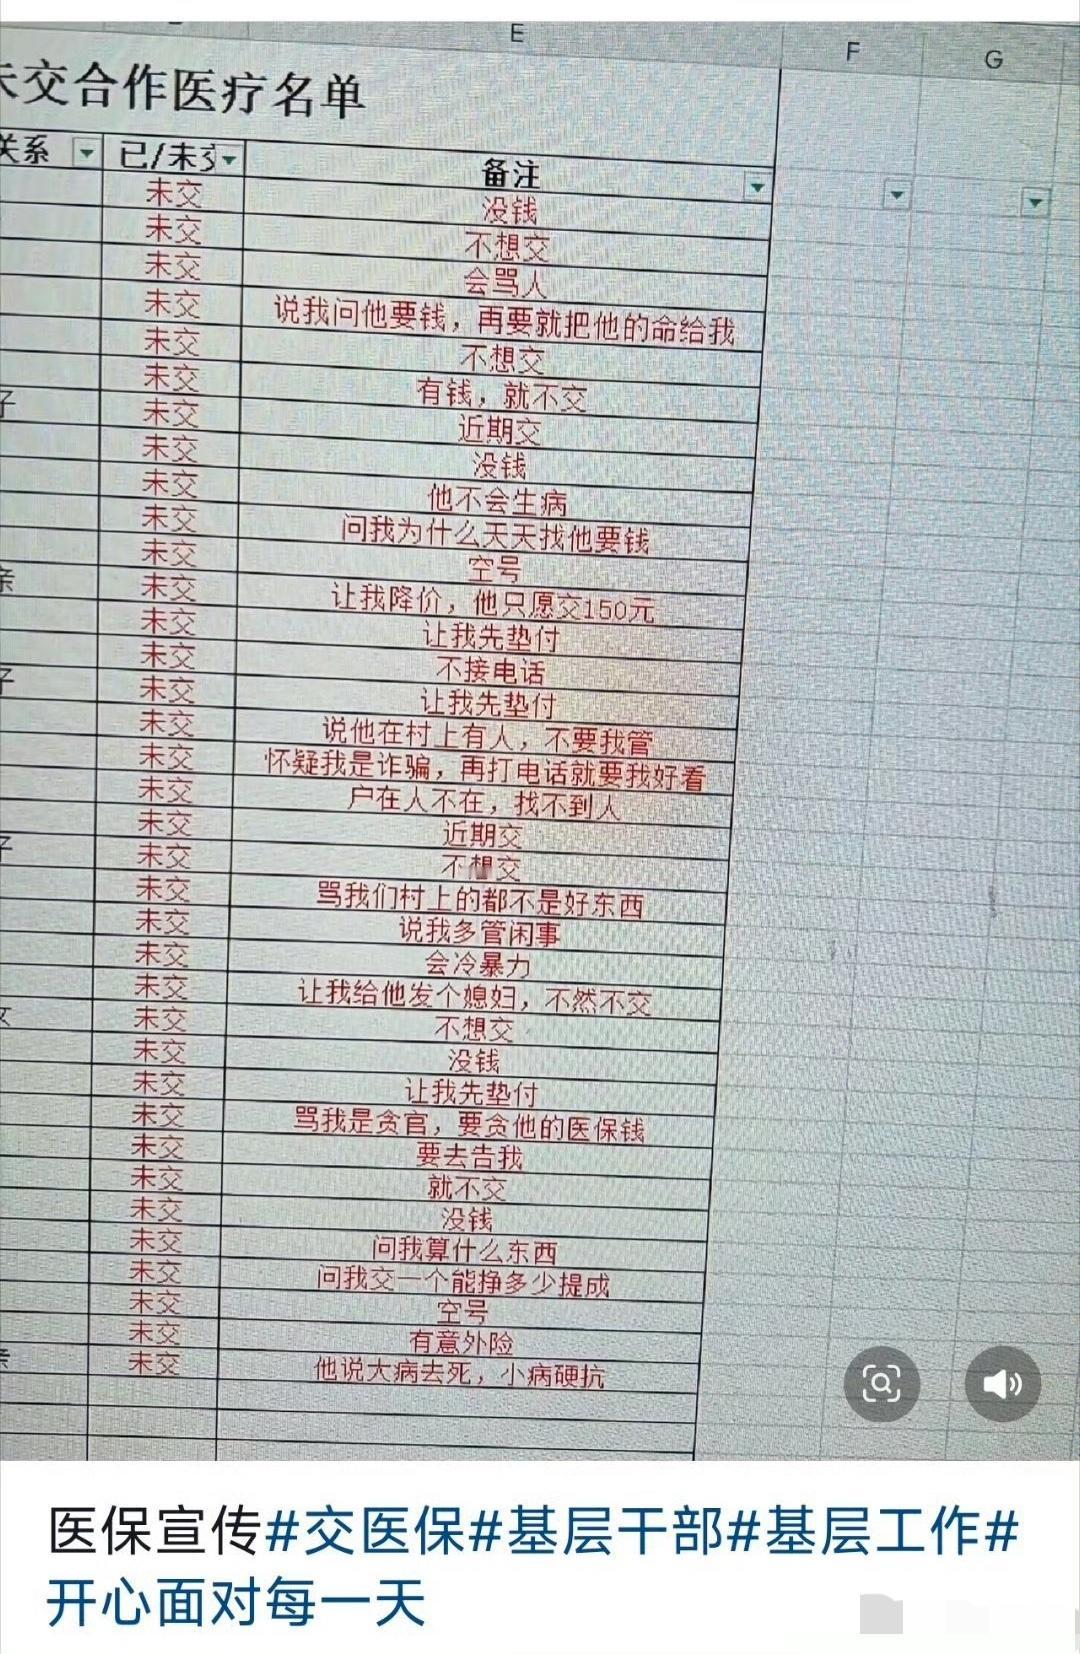 E
F
G
未交合作医疗名单
关系 已/未交 备注
未交 没钱
未交 不想交
未交 会骂人
未交 说我问他要钱，再要就把他的命给我
未交 不想交
未交 有钱，就不交
子 未交 近期交
未交 没钱
未交 他不会生病
未交 问我为什么天天找他要钱
未交 空号
亲 未交 让我降价，他只愿交150元
未交 让我先垫付
未交 不接电话
子 未交 让我先垫付
未交 说他在村上有人，不要我管
未交 怀疑我是诈骗，再打电话就要我好看
未交 户在人不在，找不到人
未交 近期交
子 未交 不想交
未交 骂我们村上的都不是好东西
未交 说我多管闲事
未交 会冷暴力
未交 让我给他发个媳妇，不然不交
女 未交 不想交
未交 没钱
未交 让我先垫付
未交 骂我是贪官，要贪他的医保钱
未交 要去告我
未交 就不交
未交 没钱
未交 问我算什么东西
未交 问我交一个能挣多少提成
未交 空号
未交 有意外险
亲 未交 他说大病去死，小病硬抗
医保宣传#交医保#基层干部#基层工作#
开心面对每一天